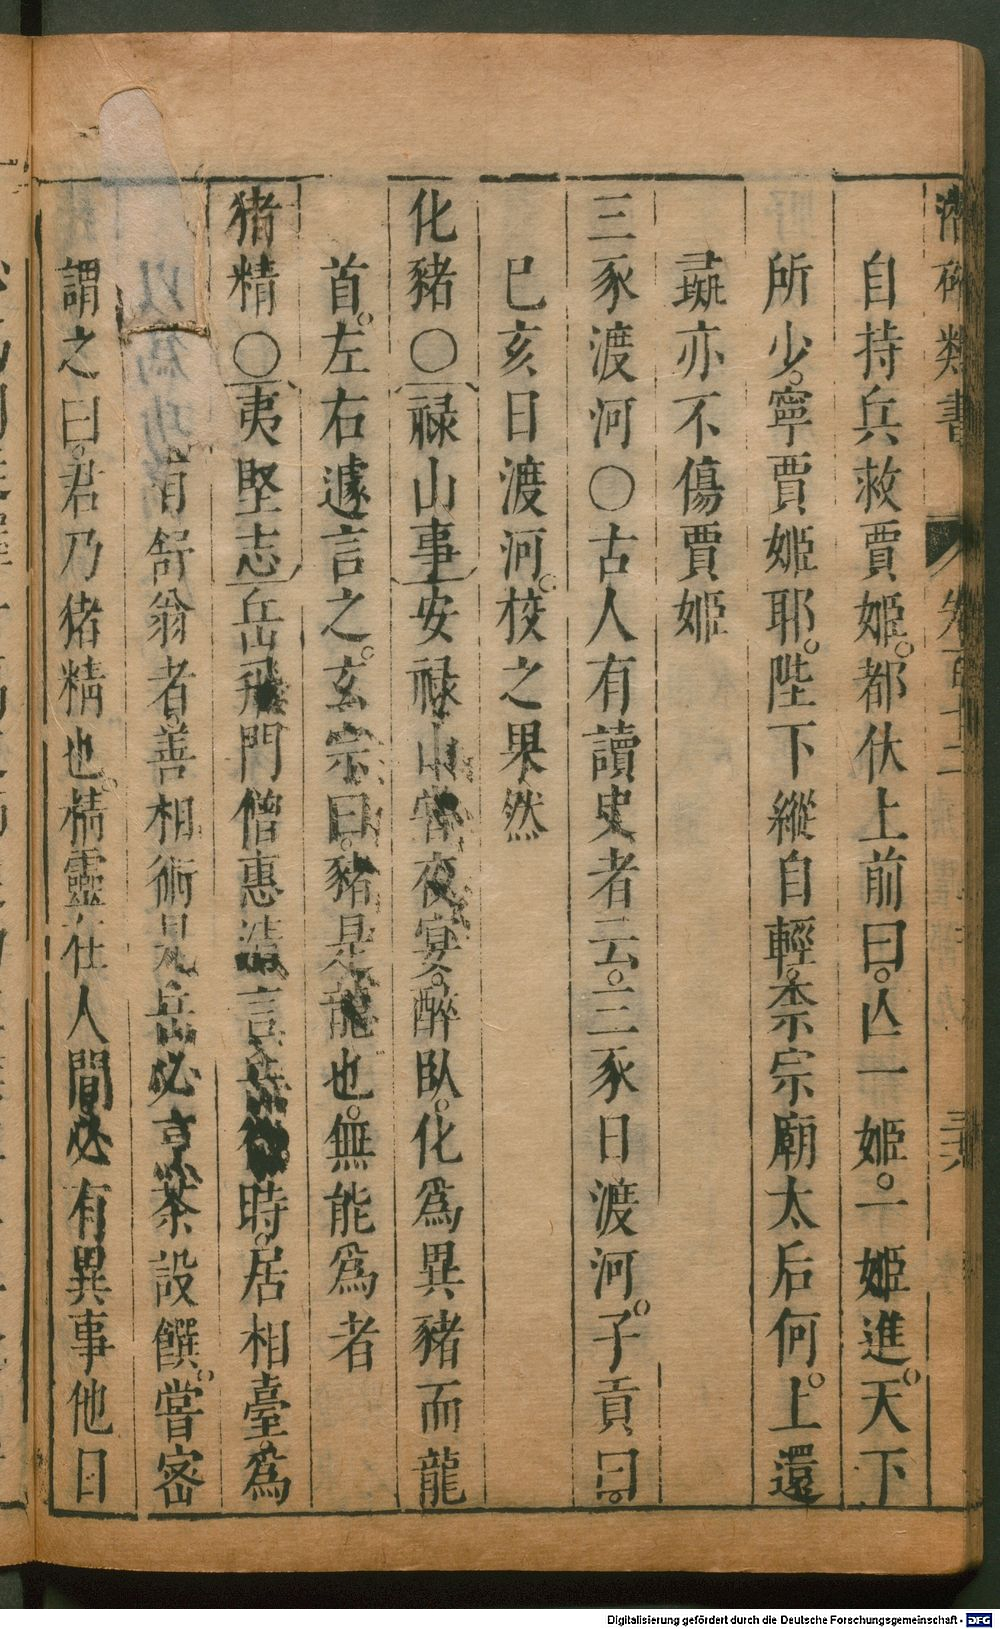 類書 卷百十二 三六
自持兵救賈姬。都伏上前曰。亾一姬。一姬進。天下
所少。寧賈姬耶。陛下縱自輕。柰宗廟太后何。上還
彘亦不傷賈姬
三豕渡河○古人有讀史者云。三豕日渡河。子貢曰。
巳亥日渡河。校之果然
化豬○祿山事安祿山甞夜宴。醉臥。化為異豬而龍
首。左右遽言之。玄宗曰。豬是龍也。無能為者
猪精○夷堅志岳飛門僧惠清言岳微時。居相臺。為
有舒翁者善相術見岳必烹茶設饌。嘗密
謂之曰。君乃猪精也。精靈在人間必有異事他日
Digitalisierung gefördert durch die Deutsche Forschungsgemeinschaft - DFG